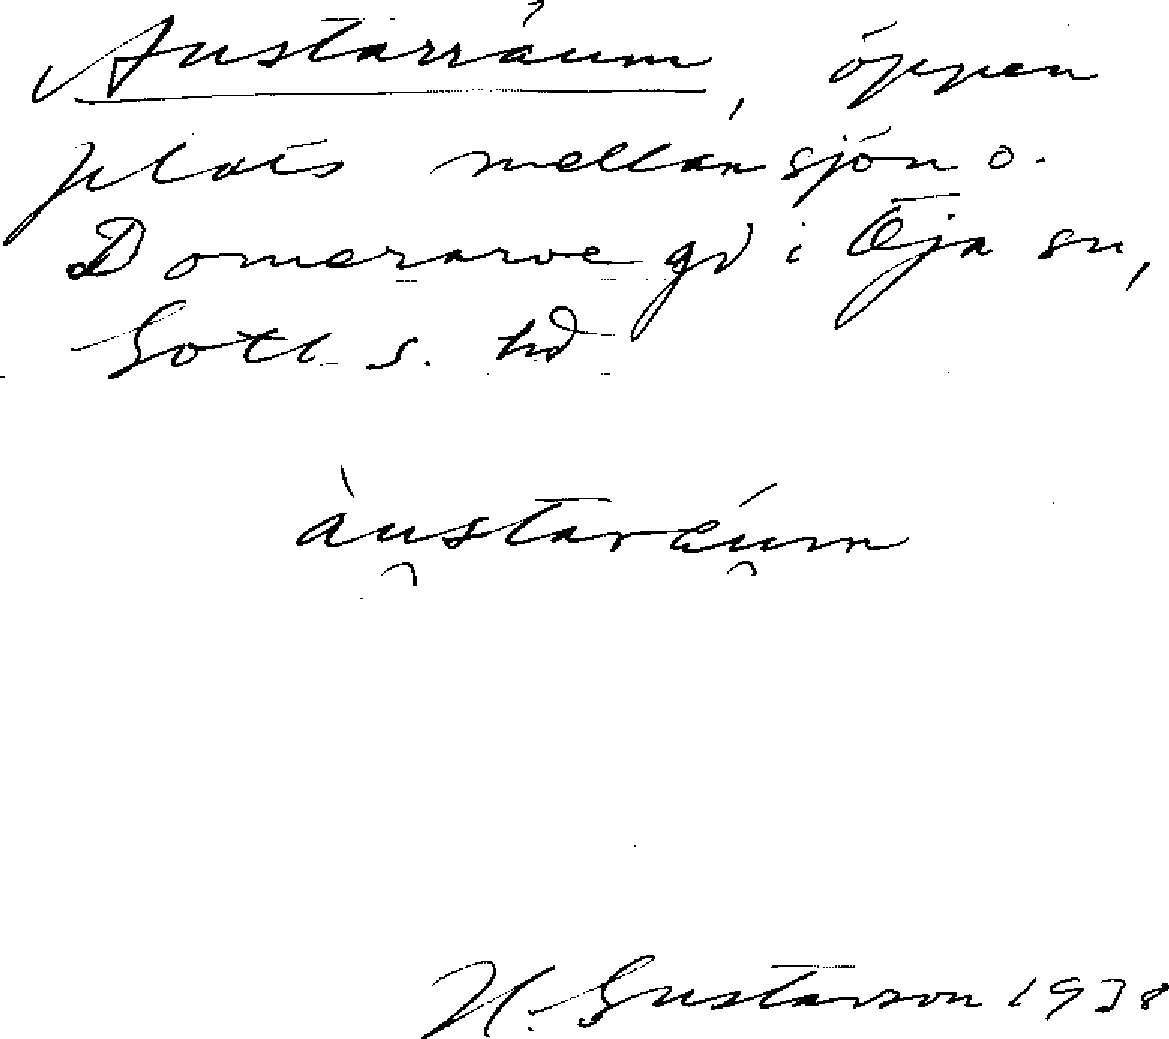 Austarräum, öppen
plats mellan sjön o.
Domerarve gd i Öja sn,
Gotl. s. hd
àu̯staréu̯m
H. Gustavson 1938